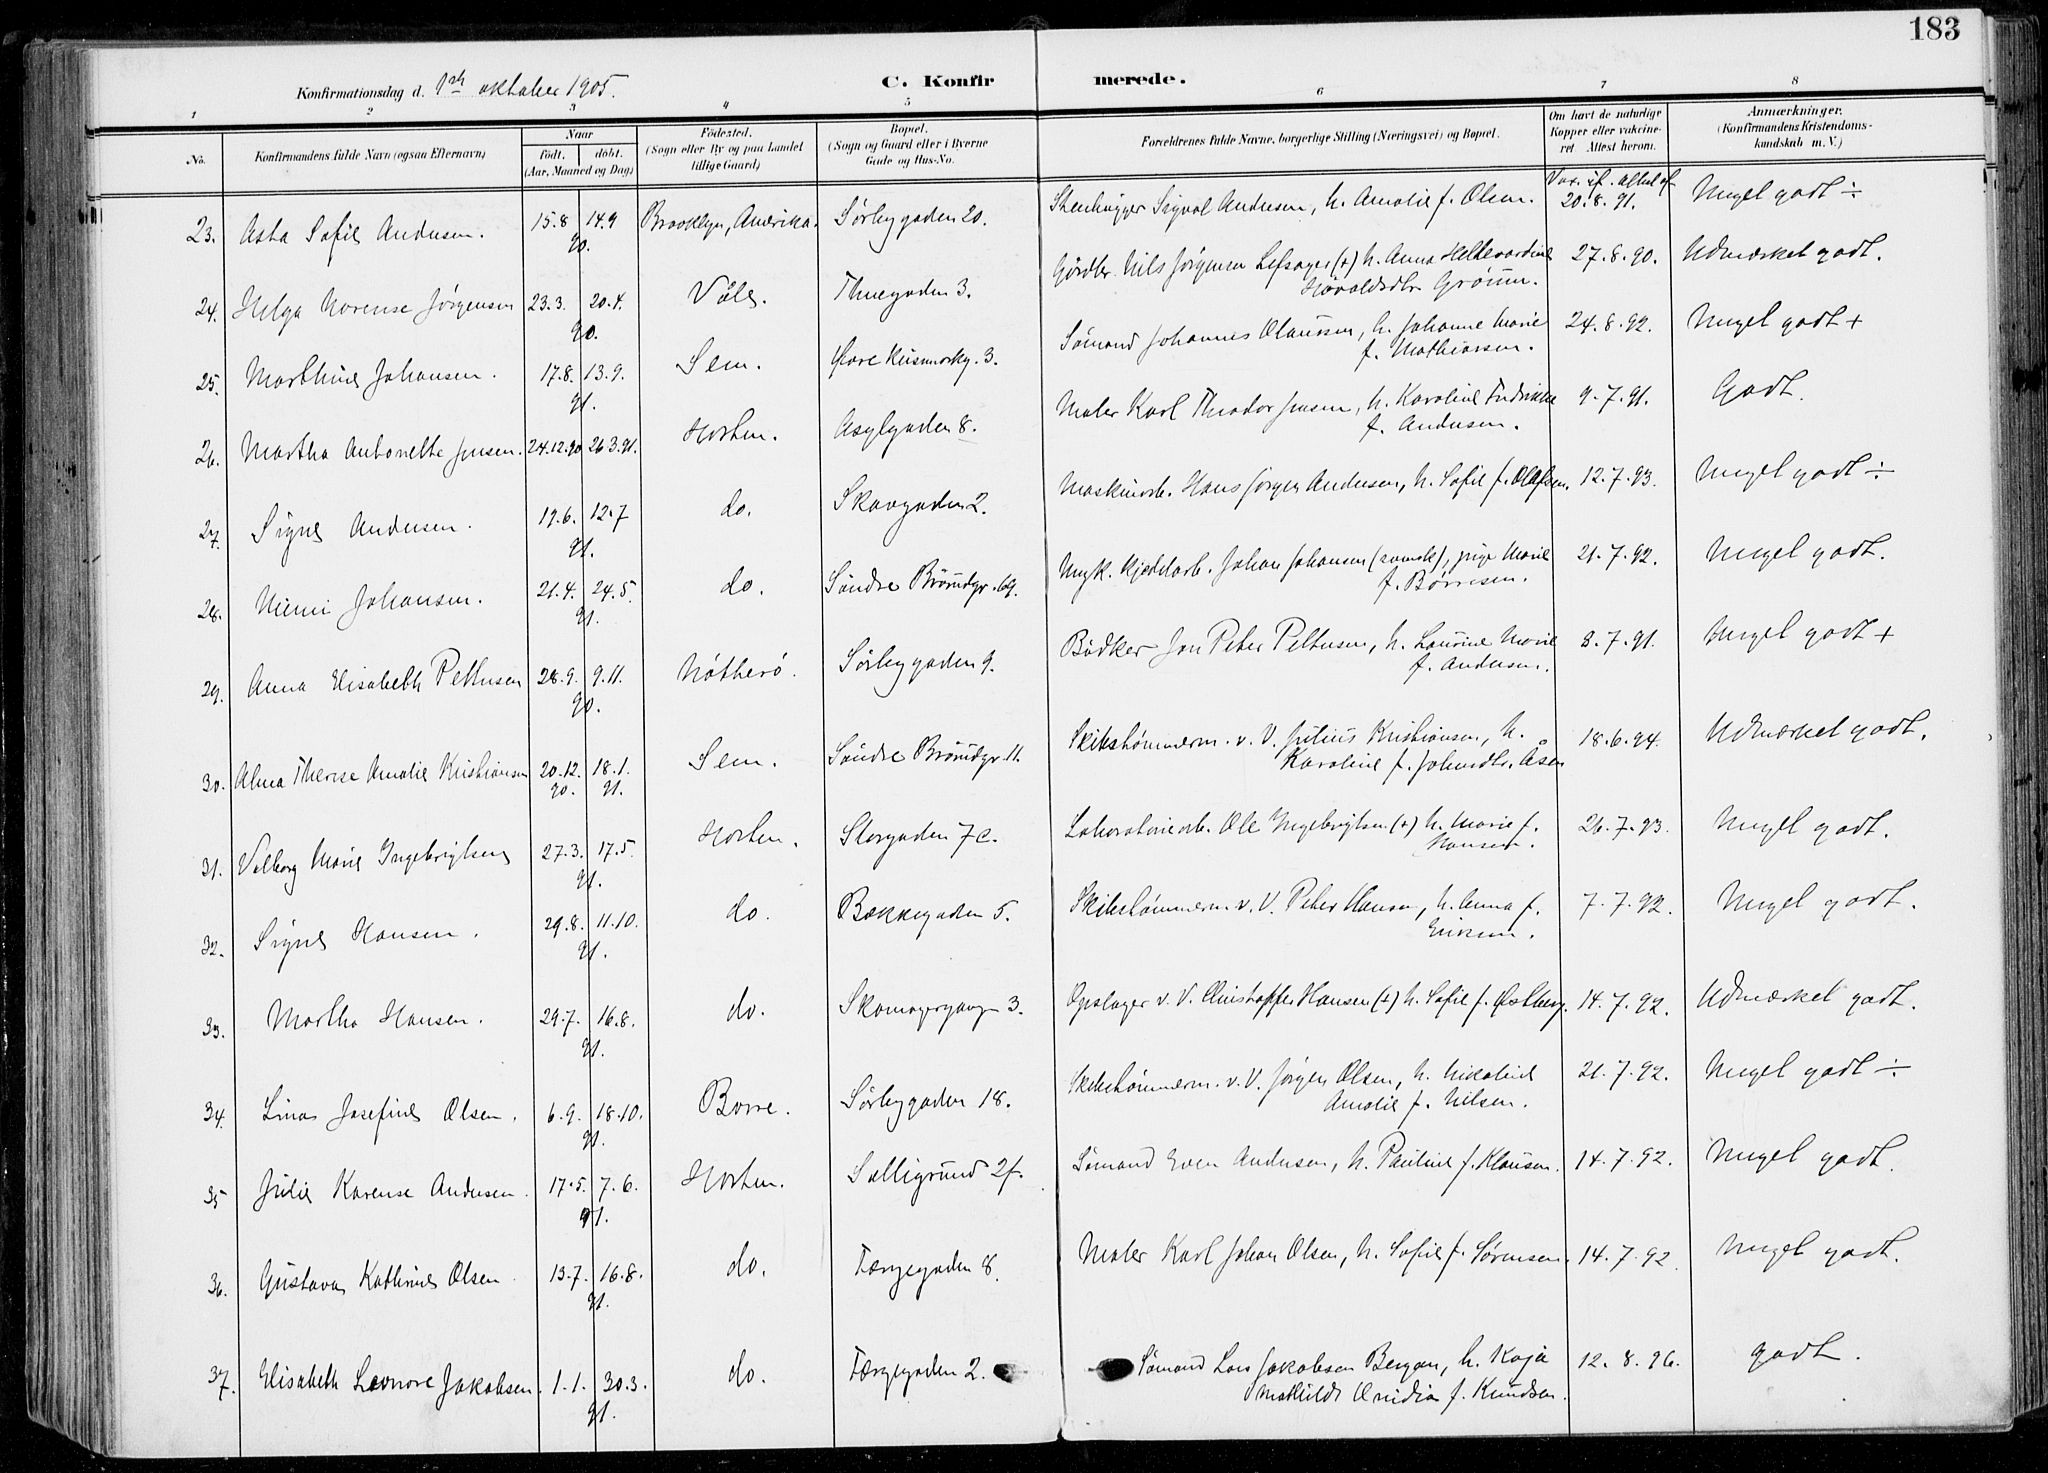 183
Konfirmationsdag d. 1ste oktober 1905.
C. Konfirmerede.
1 2 3 4 5 6 7 8
No.
Konfirmandens fulde Navn (ogsaa Efternavn)
Naar
født. døbt.
(Aar, Maaned og Dag)
Fødested.
(Sogn eller By og paa Landet
tillige Gaard)
Bopæl.
(Sogn og Gaard eller i Byerne
Gade og Hus-No.
Forældrenes fulde Navne, borgerlige Stilling (Næringsvei) og Bopæl.
Om havt de naturlige
Kopper eller vakcine-
ret. Attest herom.
Anmærkninger.
(Konfirmandens Kristendoms-
kundskab m. V.)
23. Asta Sofie Andersen. 15.8 14.9 90. Brooklyn, Amerika. Sørbygaden 20. Stenhugger Sigval Andersen, h. Amalie f. Olsen. Vax. if. attest af 20.8.91. Meget godt ÷
24. Helga Norense Jørgensen 23.3. 20.4. 90. Våle. Thuegaden 3. Gørdler Nils Jørgensen (+) h. Anna
Havaldsdtr. 27.8.90. Udmærket godt.
25. Marthine Johansen. 17.8. 13.9. 91. Sem. 3. Sømand Johannes Olaussen, h. Johanne Marie
f. Mathiassen. 24.8.92. Meget godt +
26. Martha Antonette Jensen. 24.12.90 26.3.91. Horten. Asylgaden 8. Maler Karl Theodor Jensen, h. Karoline Fredrikke
f. Andersen. 9.7.91. Godt.
27. Signe Andersen. 19.6. 12.7 91. do. Skovgaden 2. Maskinarb. Hans Jørgen Andersen, h. Sofie f. Olafsen. 12.7.93. Meget godt ÷
28. Mimi Johansen. 21.4. 24.5. 91. do. Søndre Braarudgr. 69. Kjedelarb. Johan Johansen (svensk), pige Marie
f. Børresen. 21.7.92. Meget godt.
29. Anna Elisabeth Pettersen 28.9. 9.11. 90. Nøtterø. Sørbygaden 9. Bødker Jon Peter Pettersen, h. Laurine Marie
f. Andersen. 8.7.91. Meget godt +
30. Alma Therese Amalie Kristiansen 20.12.90. 18.1.91. Sem. Søndre Braarudgr. 11. Skibstømmerm. v. V. Julius Kristiansen, h.
Karoline f. Johnsdtr. Åsen 18.6.94. Udmærket godt.
31. Valborg Marie Ingebrigtsen 27.3. 17.5. 91. Horten. Storgaden 7c. Laboratoriearb. Ole Ingebrigtsen (+) h. Marie f.
Hansen. 26.7.93. Meget godt.
32. Signe Hansen. 29.8. 11.10. 91. do. Bækkegaden 5. Skibstømmerm. v. V. Peter Hansen, h. Anna f.
Eriksen. 7.7.92. Meget godt.
33. Martha Hansen. 29.7. 16.8. 91. do. Skomagergang 3. Opslager v. V. Christopher Hansen (+) h. Sofie f. Østberg. 14.7.92. Udmærket godt.
34. Lina Josefine Olsen. 6.9. 18.10. 91. Borre. Sørbygaden 18. Skibstømmerm. v. V. Jørgen Olsen, h. Nikoline
Amalie f. Nilsen. 21.7.92. Meget godt ÷
35 Julie Karense Andersen. 17.5. 7.6. 91. Horten. Sølligrund 2f. Sømand Even Andersen, h. Pauline f. Klausen. 14.7.92. Meget godt.
36. Gustava Kathrine Olsen. 13.7. 16.8. 91. do. Færgegaden 8. Maler Karl Johan Olsen, h. Sofie f. Sørensen. 14.7.92. Meget godt.
37. Elisabeth Leonore Jakobsen. 1.1. 30.3. 91. do. Færgegaden 2. Sømand Lars Jakobsen Bergan, h. Kaja
Mathilde f. Knudsen. 12.8.96. godt.